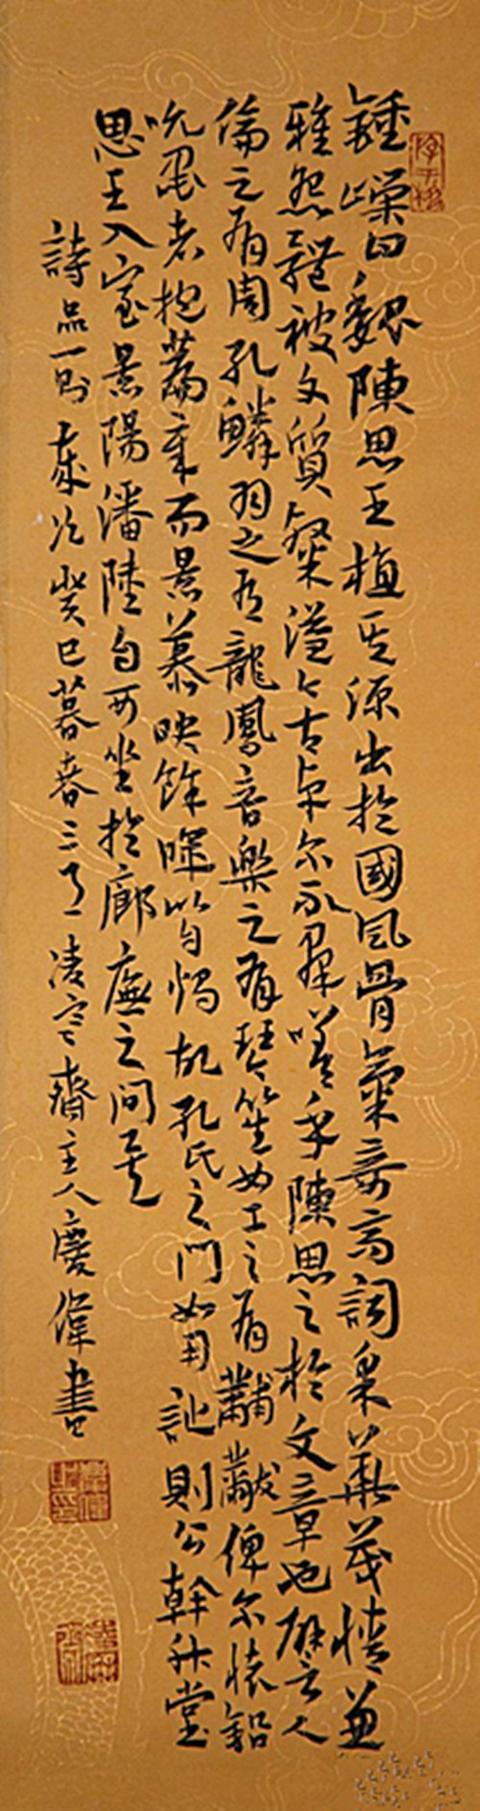 鍾嶸曰魏陳思王植其源出於國風骨氣奇高詞采華茂情兼
雅怨體被文質粲溢今古卓尔不羣嗟乎陳思之於文章也譬人
倫之有周孔鱗羽之有龍鳳音樂之有琴笙女工之有黼黻俾尔懷鉛
吮墨者抱篇章而景慕映餘暉以自燭故孔氏之門如用詩則公幹升堂
思王入室景陽潘陸自可坐於廊廡之间矣
詩品一則歲次癸巳暮春三月凌寒齋主人慶偉書